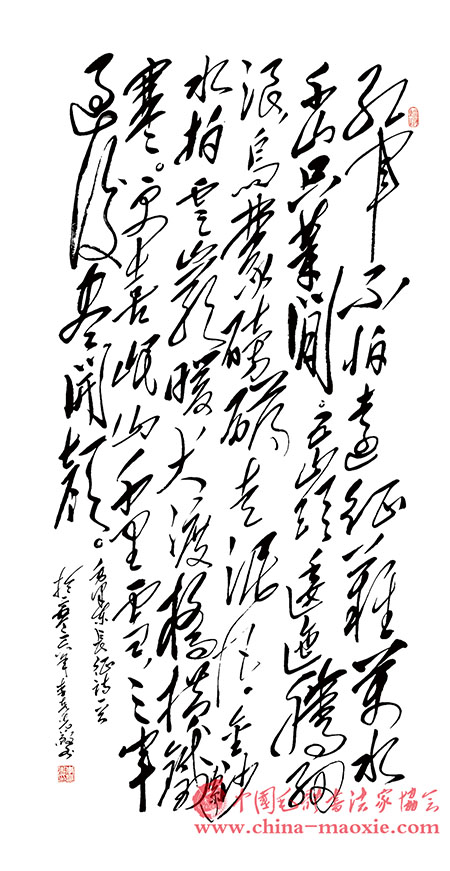 红军不怕遠征難萬水
千山只等闲。五岭逶迤腾细
浪，乌蒙磅礴走泥丸。金沙
水拍云崖暖，大渡桥横铁索
寒。更喜岷山千里雪，三军
过后尽开颜。
毛泽东长征诗一首
中國毛體書法家協會
www.china-maoxie.com